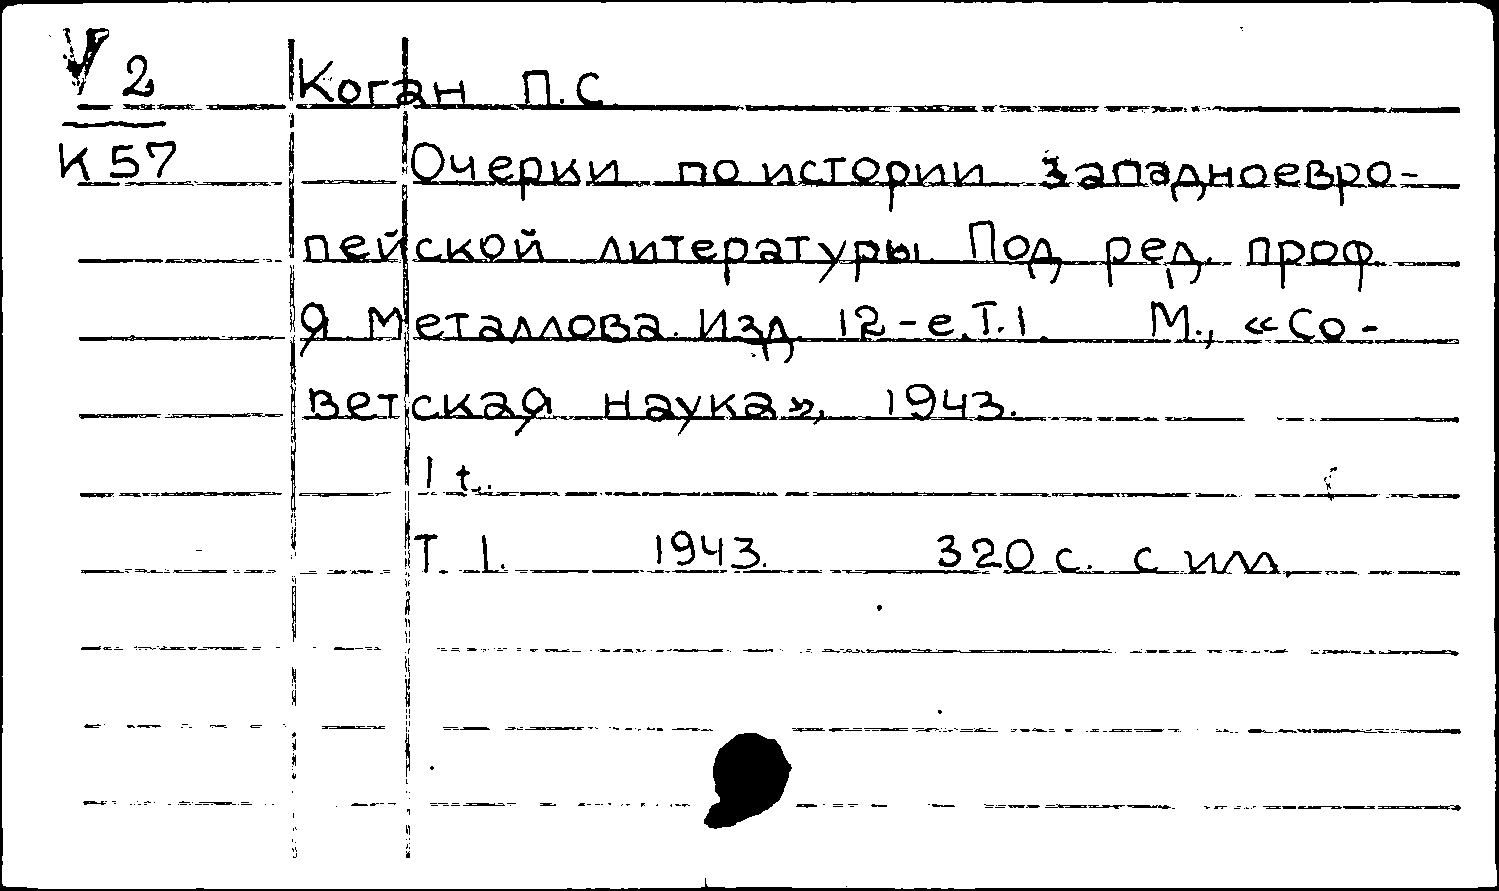 V 2
К 57
Коган П.С.
Очерки по истории западноевро-
пейской литературы. Под ред. проф.
Я Металлова. Изд. 12-е. Т. 1. М., «Со-
ветская наука», 1943.
1 t.
Т. 1. 1943. 320 с. с илл.